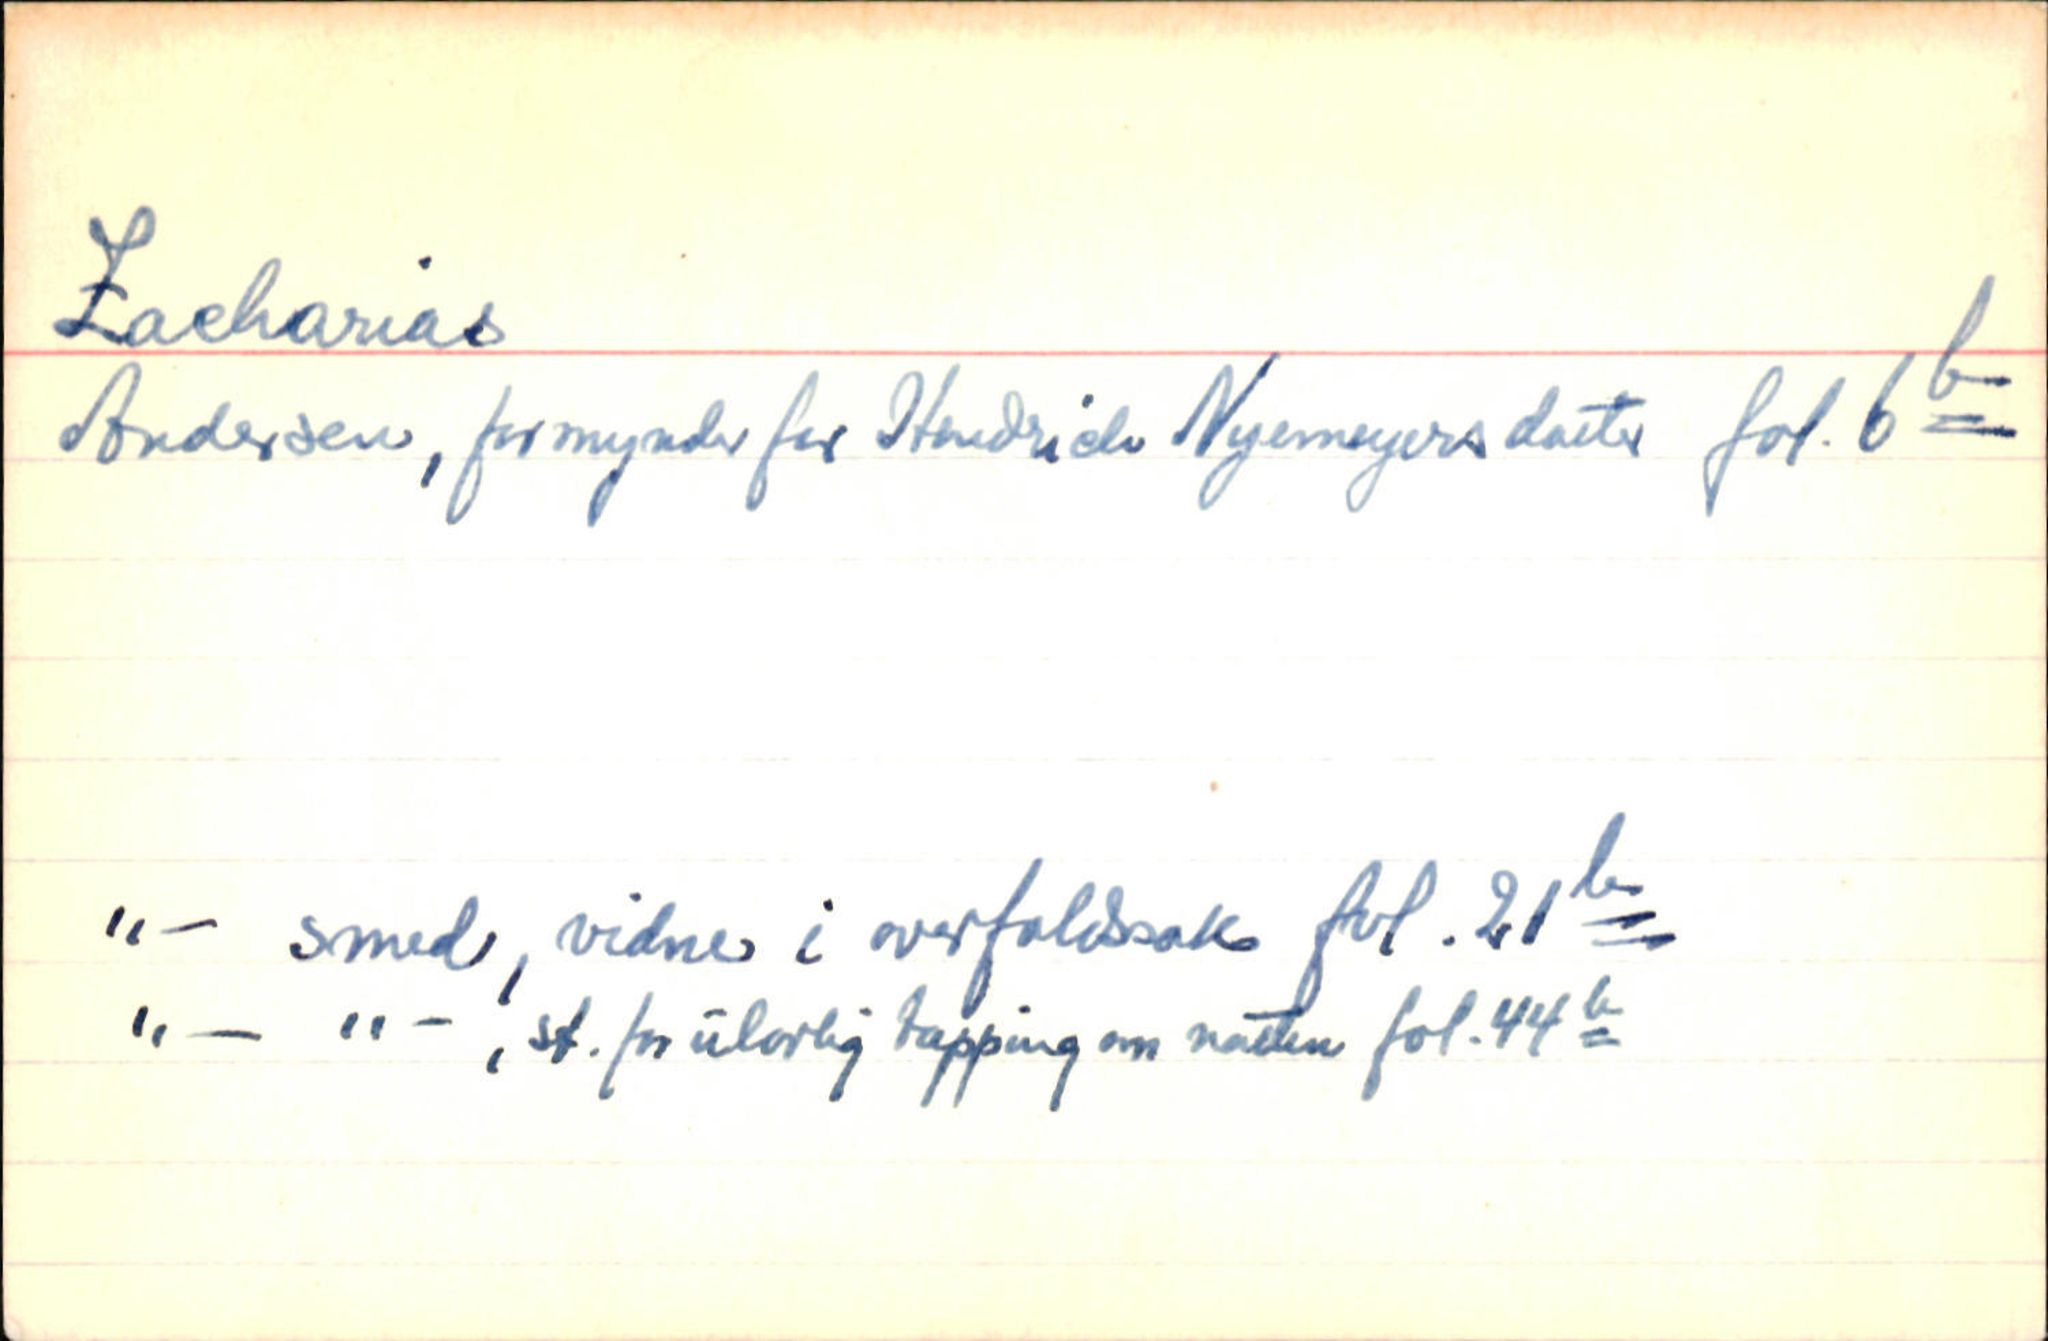 Zacharias
Andersen, formynder for Hendrich Nyemeyers datter fol. 6 b
"- smed, vidne i overfaldssak fol. 21 b
"- "-, st. for ulovlig tapping om natten fol. 44 b